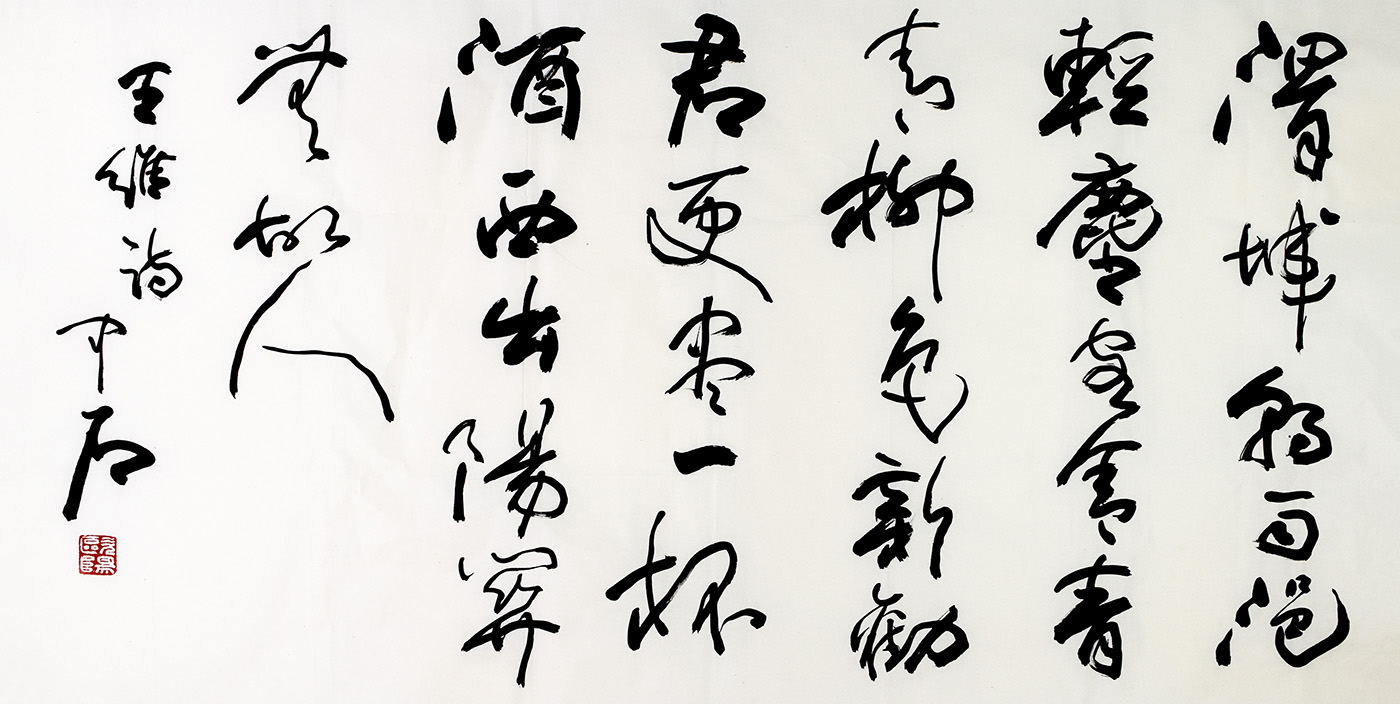 渭城朝雨浥
輕塵客舍青
青柳色新勸
君更盡一杯
酒西出陽關
無故人
王維詩中石